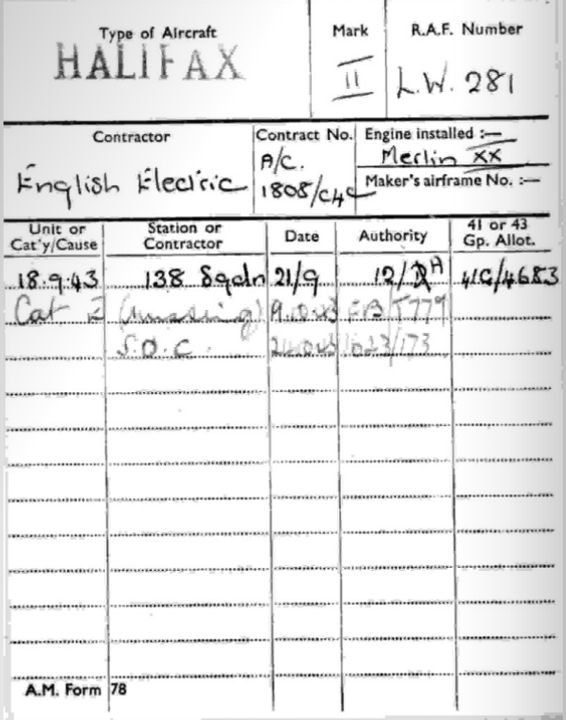 Type of Aircraft
HALIFAX
Mark
II
R.A.F. Number
L.W. 281
Contractor
English Electric
Contract No.
A/C.
1808/C4C
Engine installed :—
Merlin XX
Maker's airframe No. :—
Unit or Cat'y/Cause Station or Contractor Date Authority 41 or 43 Gp. Allot.
18.9.43 138 Sqdn 21/9 12/ 41G/4683
Cat E (missing) 9.10.43 FB/T779
S.O.C. /173
A.M. Form 78